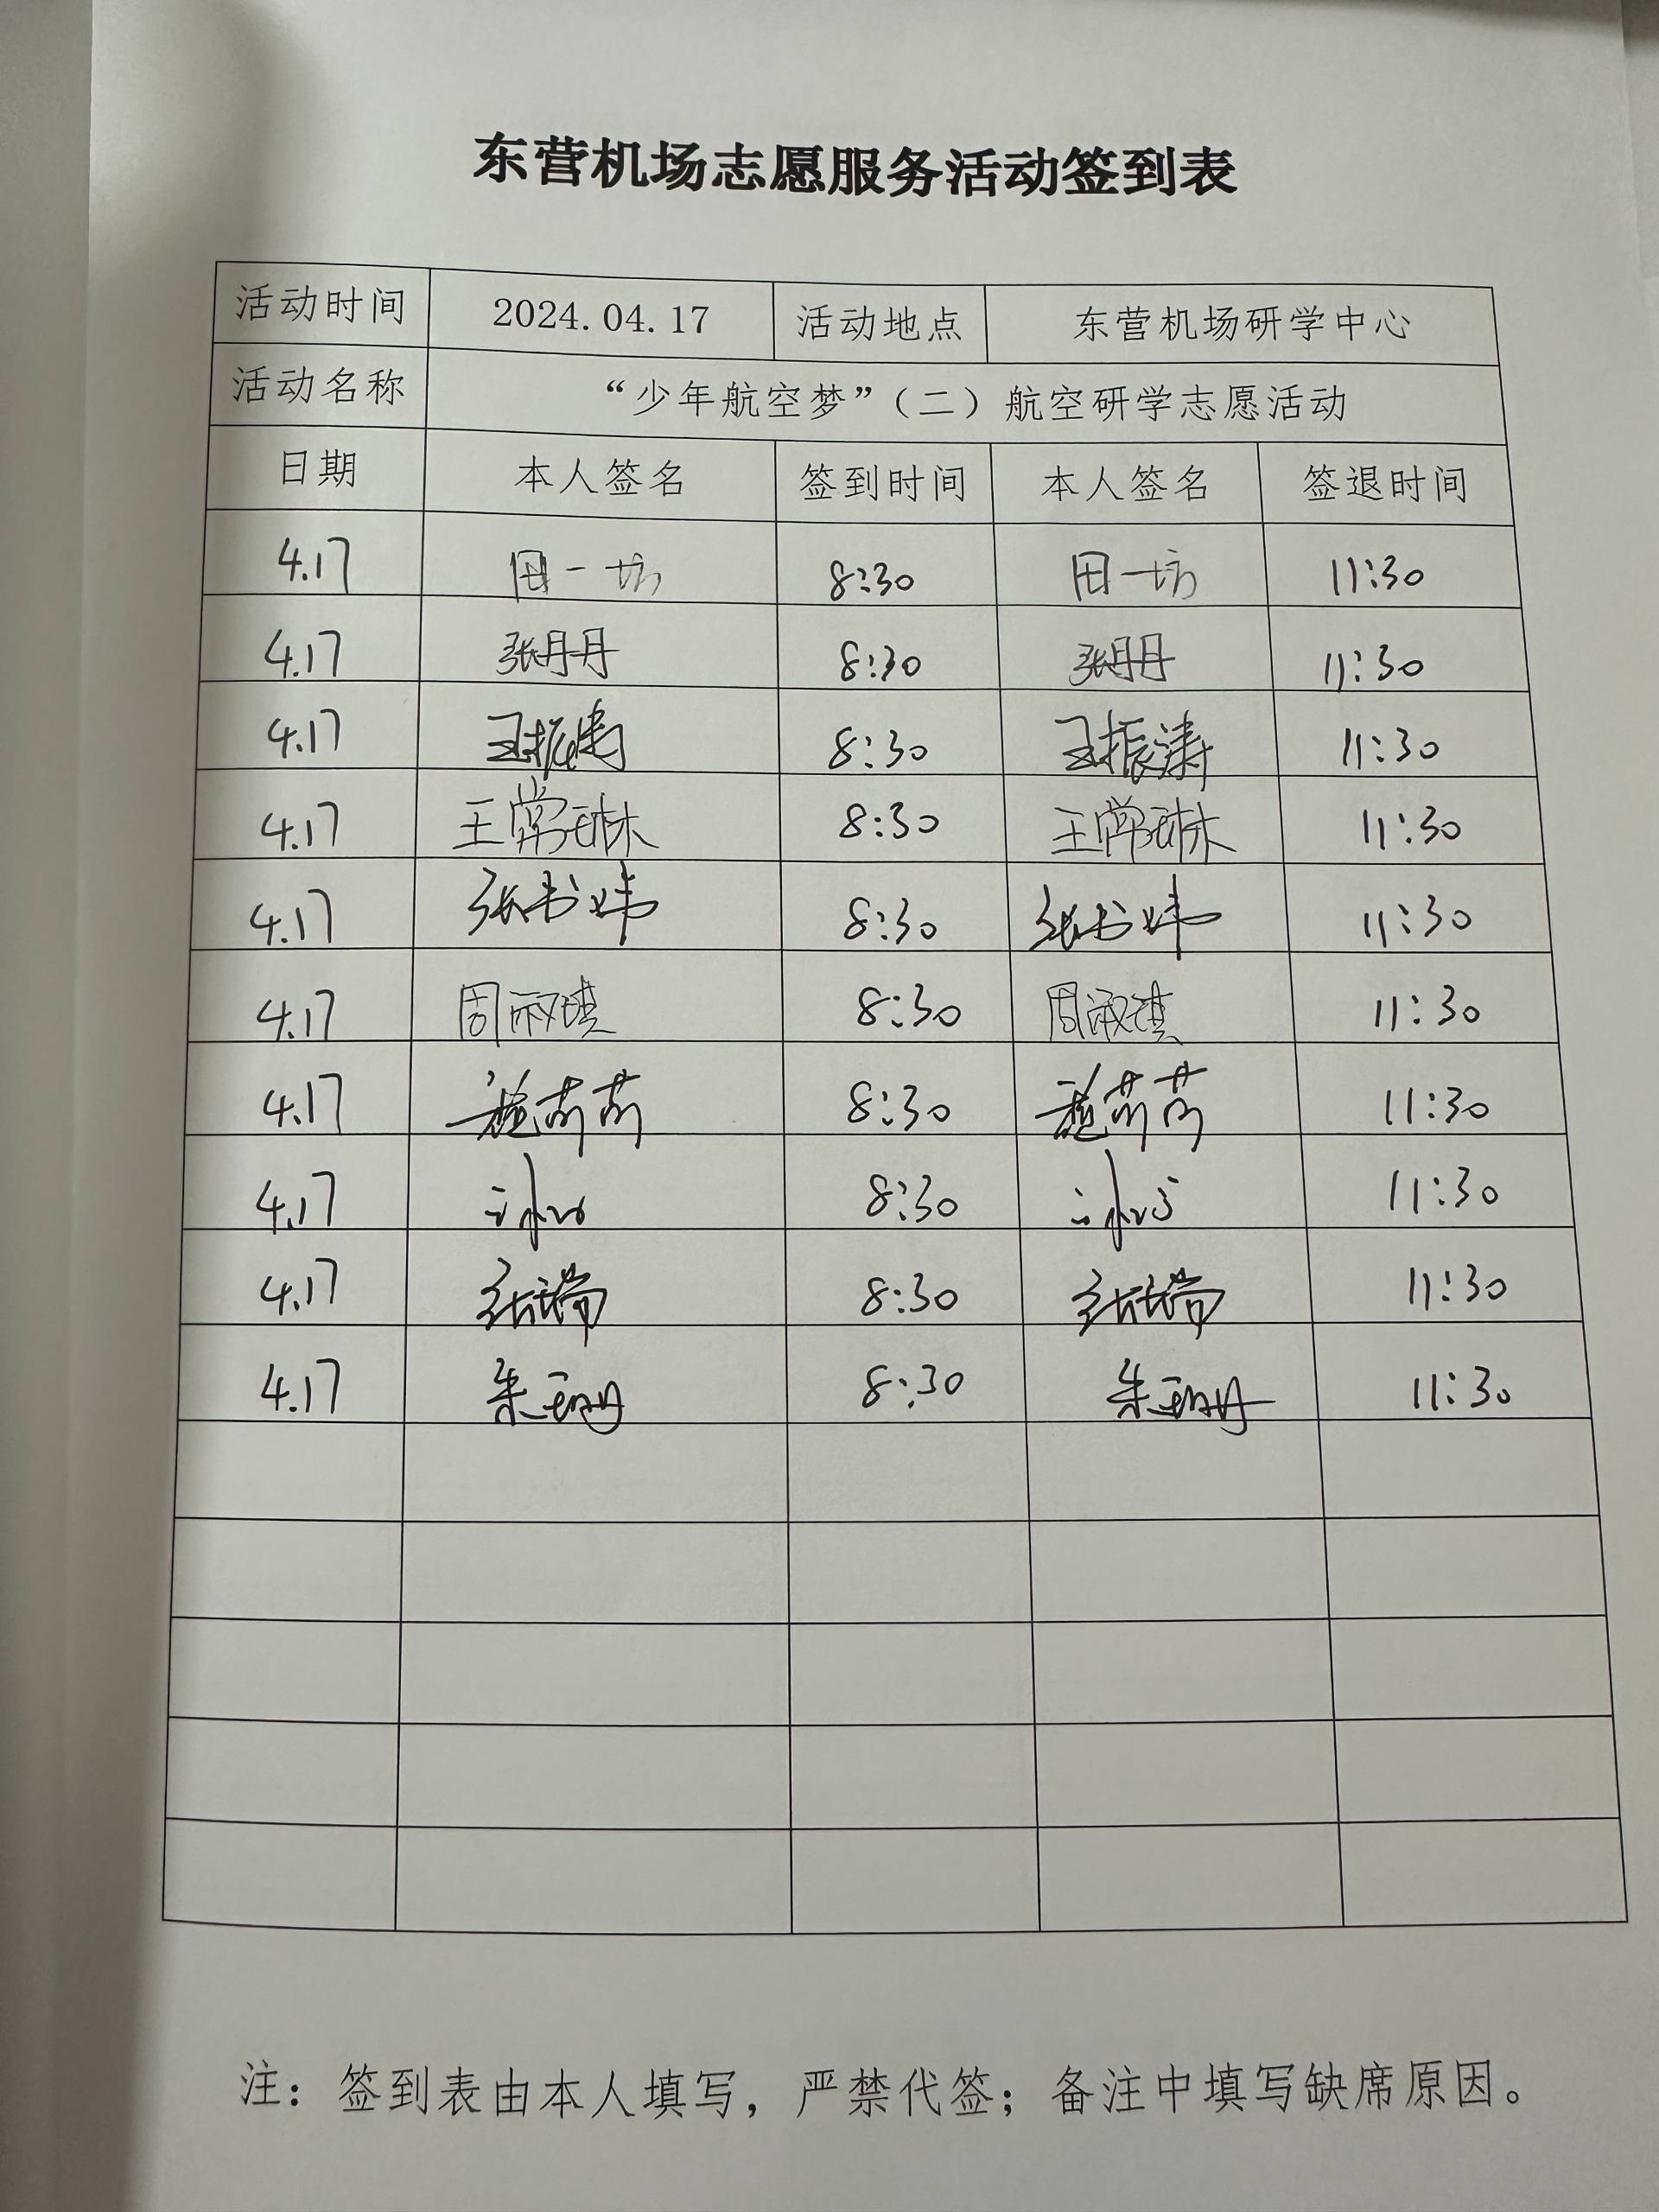 东营机场志愿服务活动签到表
活动时间 2024.04.17 活动地点 东营机场研学中心
活动名称 “少年航空梦”(二)航空研学志愿活动
日期 本人签名 签到时间 本人签名 签退时间
4.17 田一坊 8:30 田一坊 11:30
4.17 张丹丹 8:30 张丹丹 11:30
4.17 王振涛 8:30 王振涛 11:30
4.17 王常琳 8:30 王常琳 11:30
4.17 张书玮 8:30 张书玮 11:30
4.17 周淑琪 8:30 周淑琪 11:30
4.17 8:30 11:30
4.17 8:30 11:30
4.17 张瑞 8:30 张瑞 11:30
4.17 朱珊珊 8:30 朱珊珊 11:30
注：签到表由本人填写，严禁代签；备注中填写缺席原因。